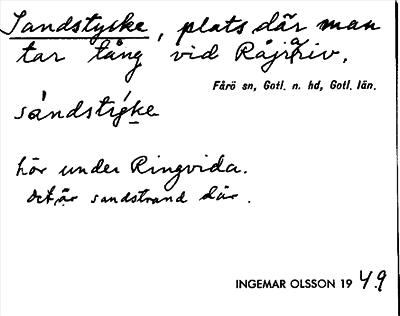 Sandstyske, plats där man
tar tång vid Råjsriv.
Fårö sn, Gotl. n. hd, Gotl. län.
sándstiske
hör under Ringvida.
Det är sandstrand där.
INGEMAR OLSSON 1949